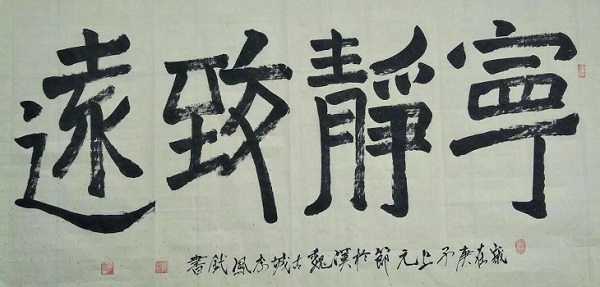 寧靜致遠
歲在庚子上元節於漢魏古城李鳳書